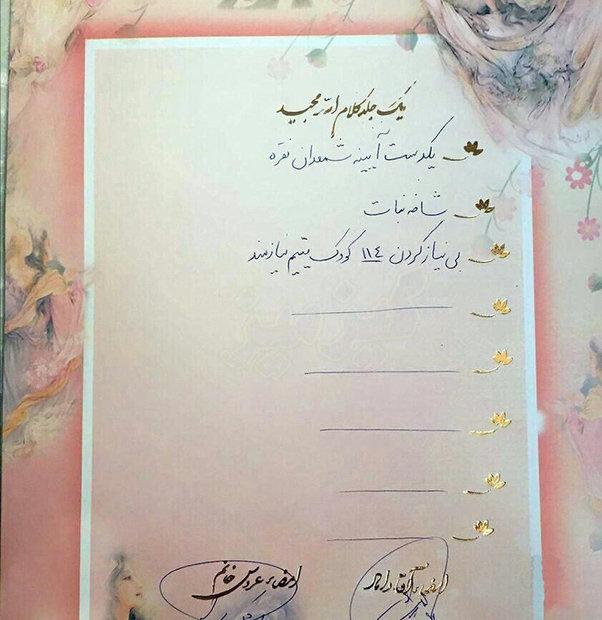 یک جلد کلام الله مجید
یکدست آیینه شمعدان نقره
شاخه نبات
بی نیاز کردن ۱۱۴ کودک یتیم نیازمند
امضاء آقا داماد
امضاء عروس خانم